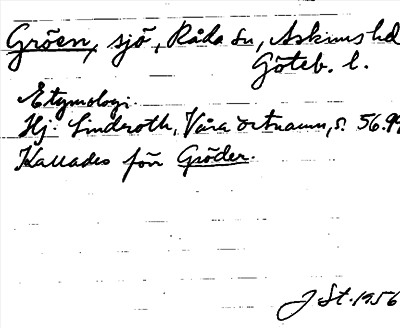 Gröen, sjö, Råda sn, Askims hd
Göteb. l.
Etymologi.
Hj. Linderoth, Våra ortnamn, s. 56.99
Kallades förr Gröder.
J St. 1956